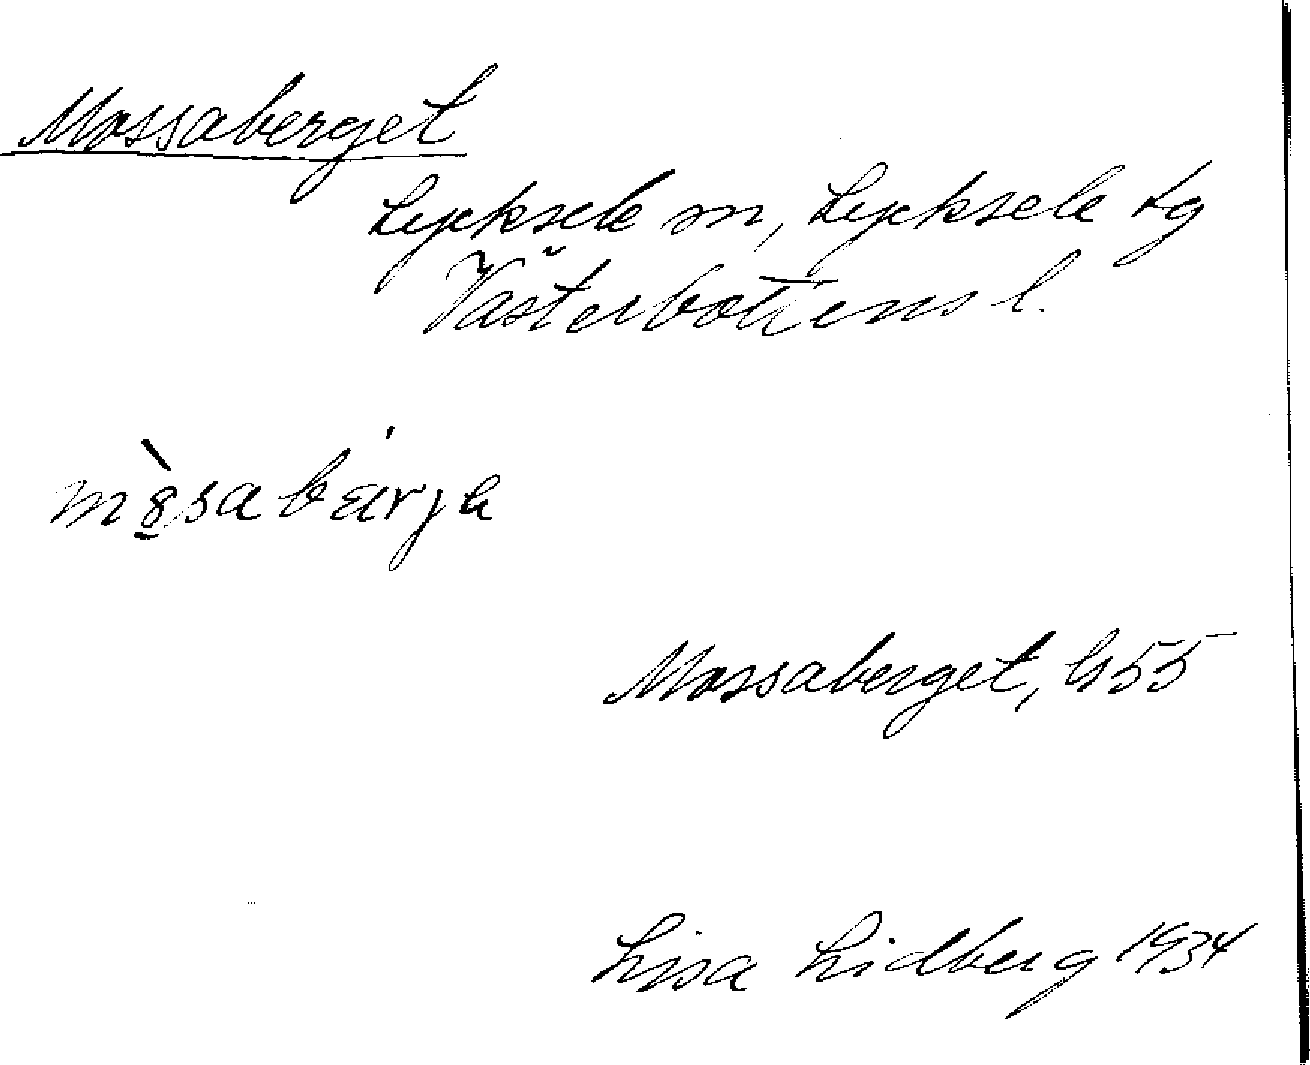 Mossaberget
Lycksele m, Lycksele tg
Västerbottens l.
Mossaberget, G55
Lisa Lidberg 1934